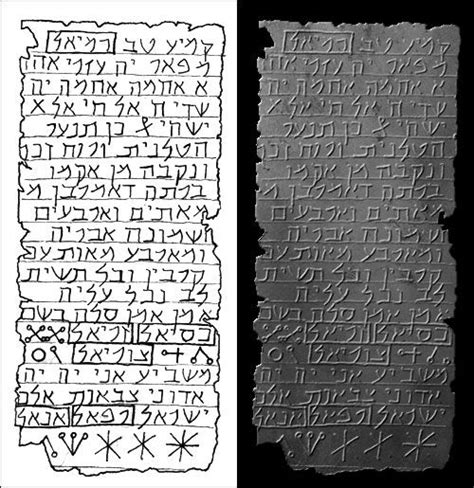 קמיע טב רמיאל
פאר יה עזרי אהה
א אחמה אחמה יה
שדי ח אל חי אל
ישהי כן תנער
הטלנית ורוח זכר
ונקבה מן אקמו
ברתה דאמרבן מ
מאתים וארבעים
ושמונה אבריה
ומארבע מאות
קרבין וכל תשית
לב וכל עליה
אמן אמן סלה בשם
כסיאל זריאל
צוריאל
משביע אני יה יה
אדוני צבאות אלה
ישראל רפאל אנאל